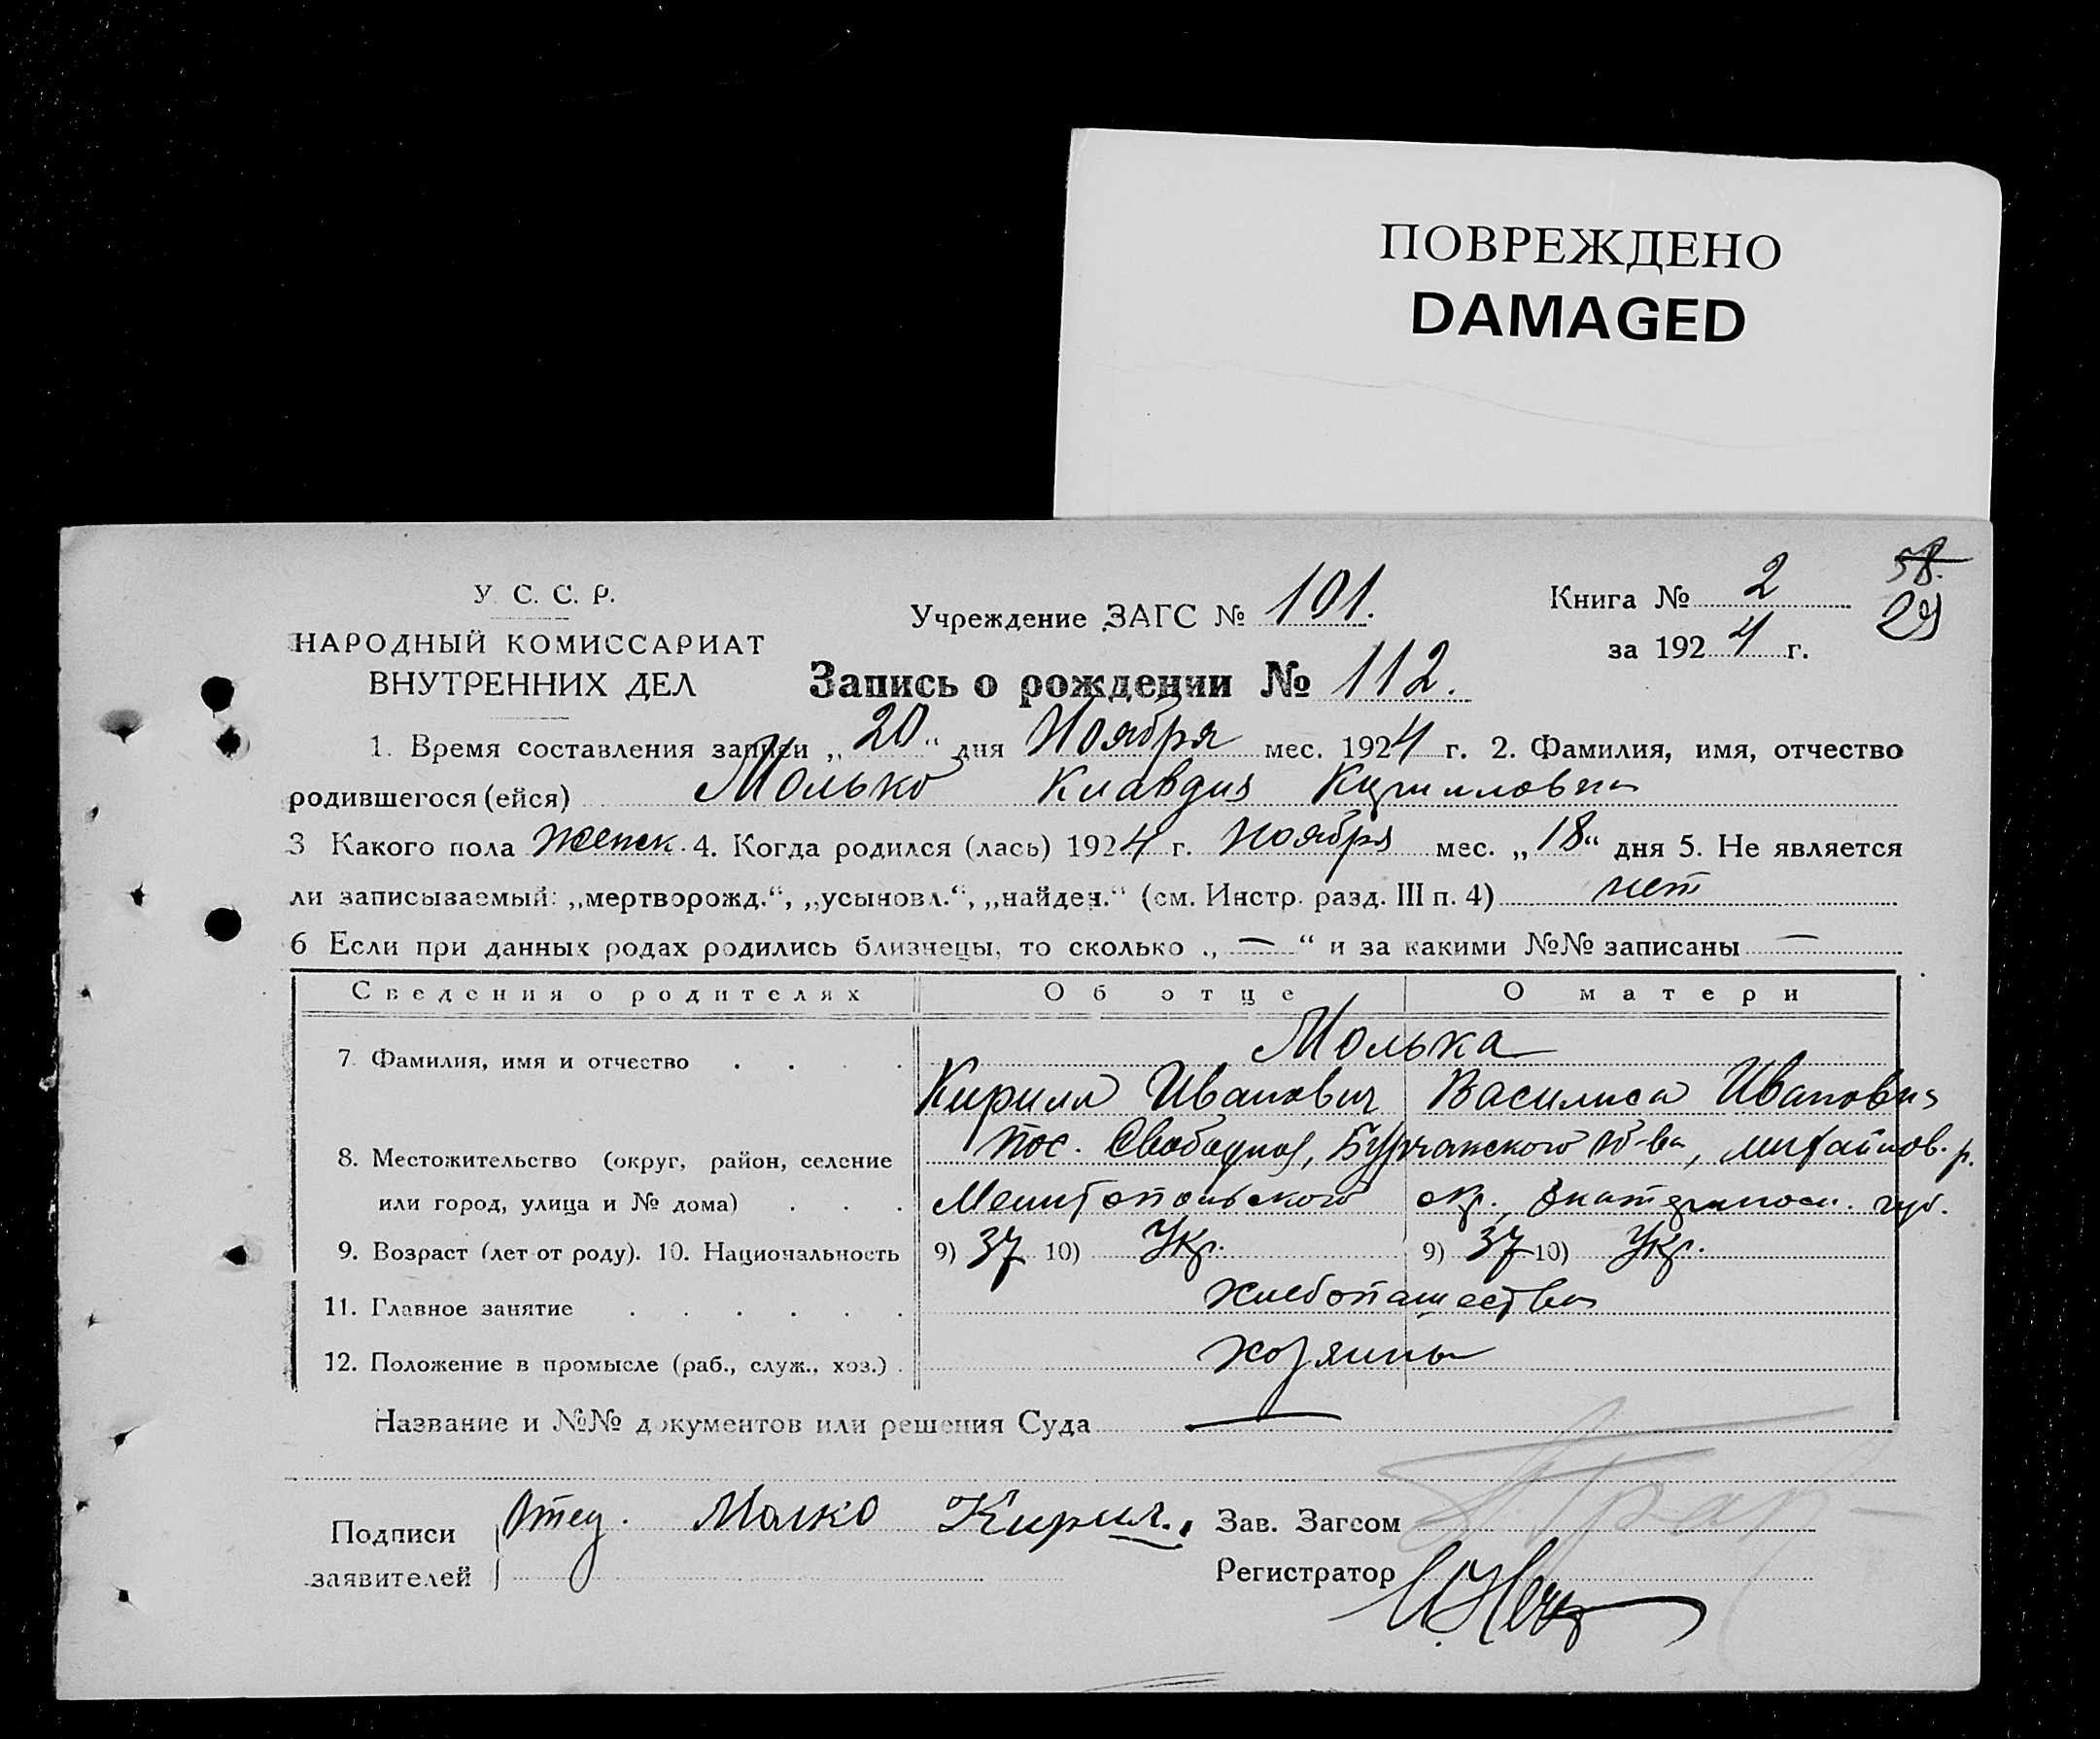 ПОВРЕЖДЕНО
DAMAGED
У. С. С. Р.
НАРОДНЫЙ КОМИССАРИАТ
ВНУТРЕННИХ ДЕЛ
Учреждение ЗАГС № 101.
Книга № 2
58.
29
за 1924 г.
Запись о рождении № 112.
1. Время составления записи „20“ дня Ноября мес. 1924 г. 2. Фамилия, имя, отчество
родившегося (ейся) Молько Клавдия Кирилловна
3 Какого пола женск. 4. Когда родился (лась) 1924 г. Ноября мес. „18“ дня 5. Не является
ли записываемый: „мертворожд.“, „усыновл.“, „найден.“ (см. Инстр. разд. III п. 4) нет
6 Если при данных родах родились близнецы, то сколько „—“ и за какими №№ записаны —
Сведения о родителях Об отце О матери
7. Фамилия, имя и отчество . . . . Молька
Кирилл Иванович Василиса Ивановна
8. Местожительство (округ, район, селение пос. Свободный, Бурчакского о-ва, Михайлов. р.
или город, улица и № дома) . . . Мелитопольского окр., Екатеринос. губ.
9. Возраст (лет от роду). 10. Национальность 9) 37 10) Укр. 9) 37 10) Укр.
11. Главное занятие . . . . . . хлебопашество
12. Положение в промысле (раб., служ., хоз.) . хозяины
Название и №№ документов или решения Суда —
Подписи Отец. Малко Кирил. Зав. Загсом
заявителей Регистратор